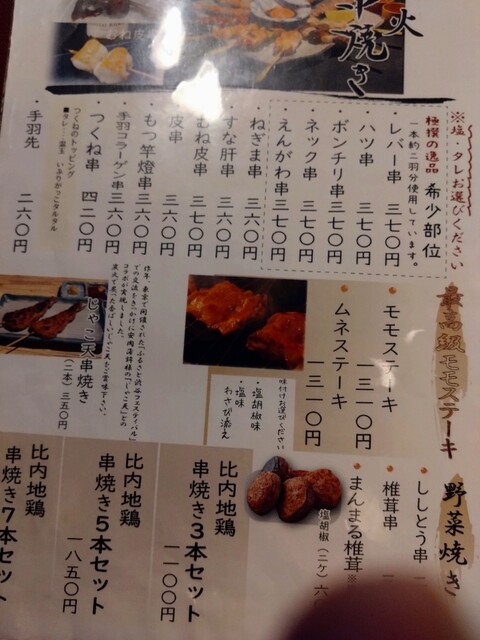 火
串焼き
むね皮串
※塩・タレお選びください
極撰の逸品 希少部位
一本約二羽分使用しています。
レバー串 三七〇円
ハツ串 三七〇円
ボンチリ串 三七〇円
ネック串 三七〇円
えんがわ串 三七〇円
ねぎま串 三六〇円
すな肝串 三六〇円
むね皮串 三七〇円
皮串 三六〇円
もつ竿燈串 三六〇円
手羽コラーゲン串 三六〇円
つくね串 四二〇円
つくねのトッピング
いぶりがっこタルタル
手羽先 二六〇円
最高級モモステーキ
モモステーキ 一三一〇円
ムネステーキ 一三一〇円
味付けお選びください
・塩胡椒味
・塩味
わさび添え
東京で開催された「ふるさと渋谷フェスティバル」
コラボが実現しました。
じゃこ天串焼き
(二本) 三五〇円
野菜焼き
ししとう串
椎茸串
まんまる椎茸※
塩胡椒 (二ケ)
比内地鶏
串焼き3本セット
一一〇〇円
比内地鶏
串焼き5本セット
一八五〇円
比内地鶏
串焼き7本セット